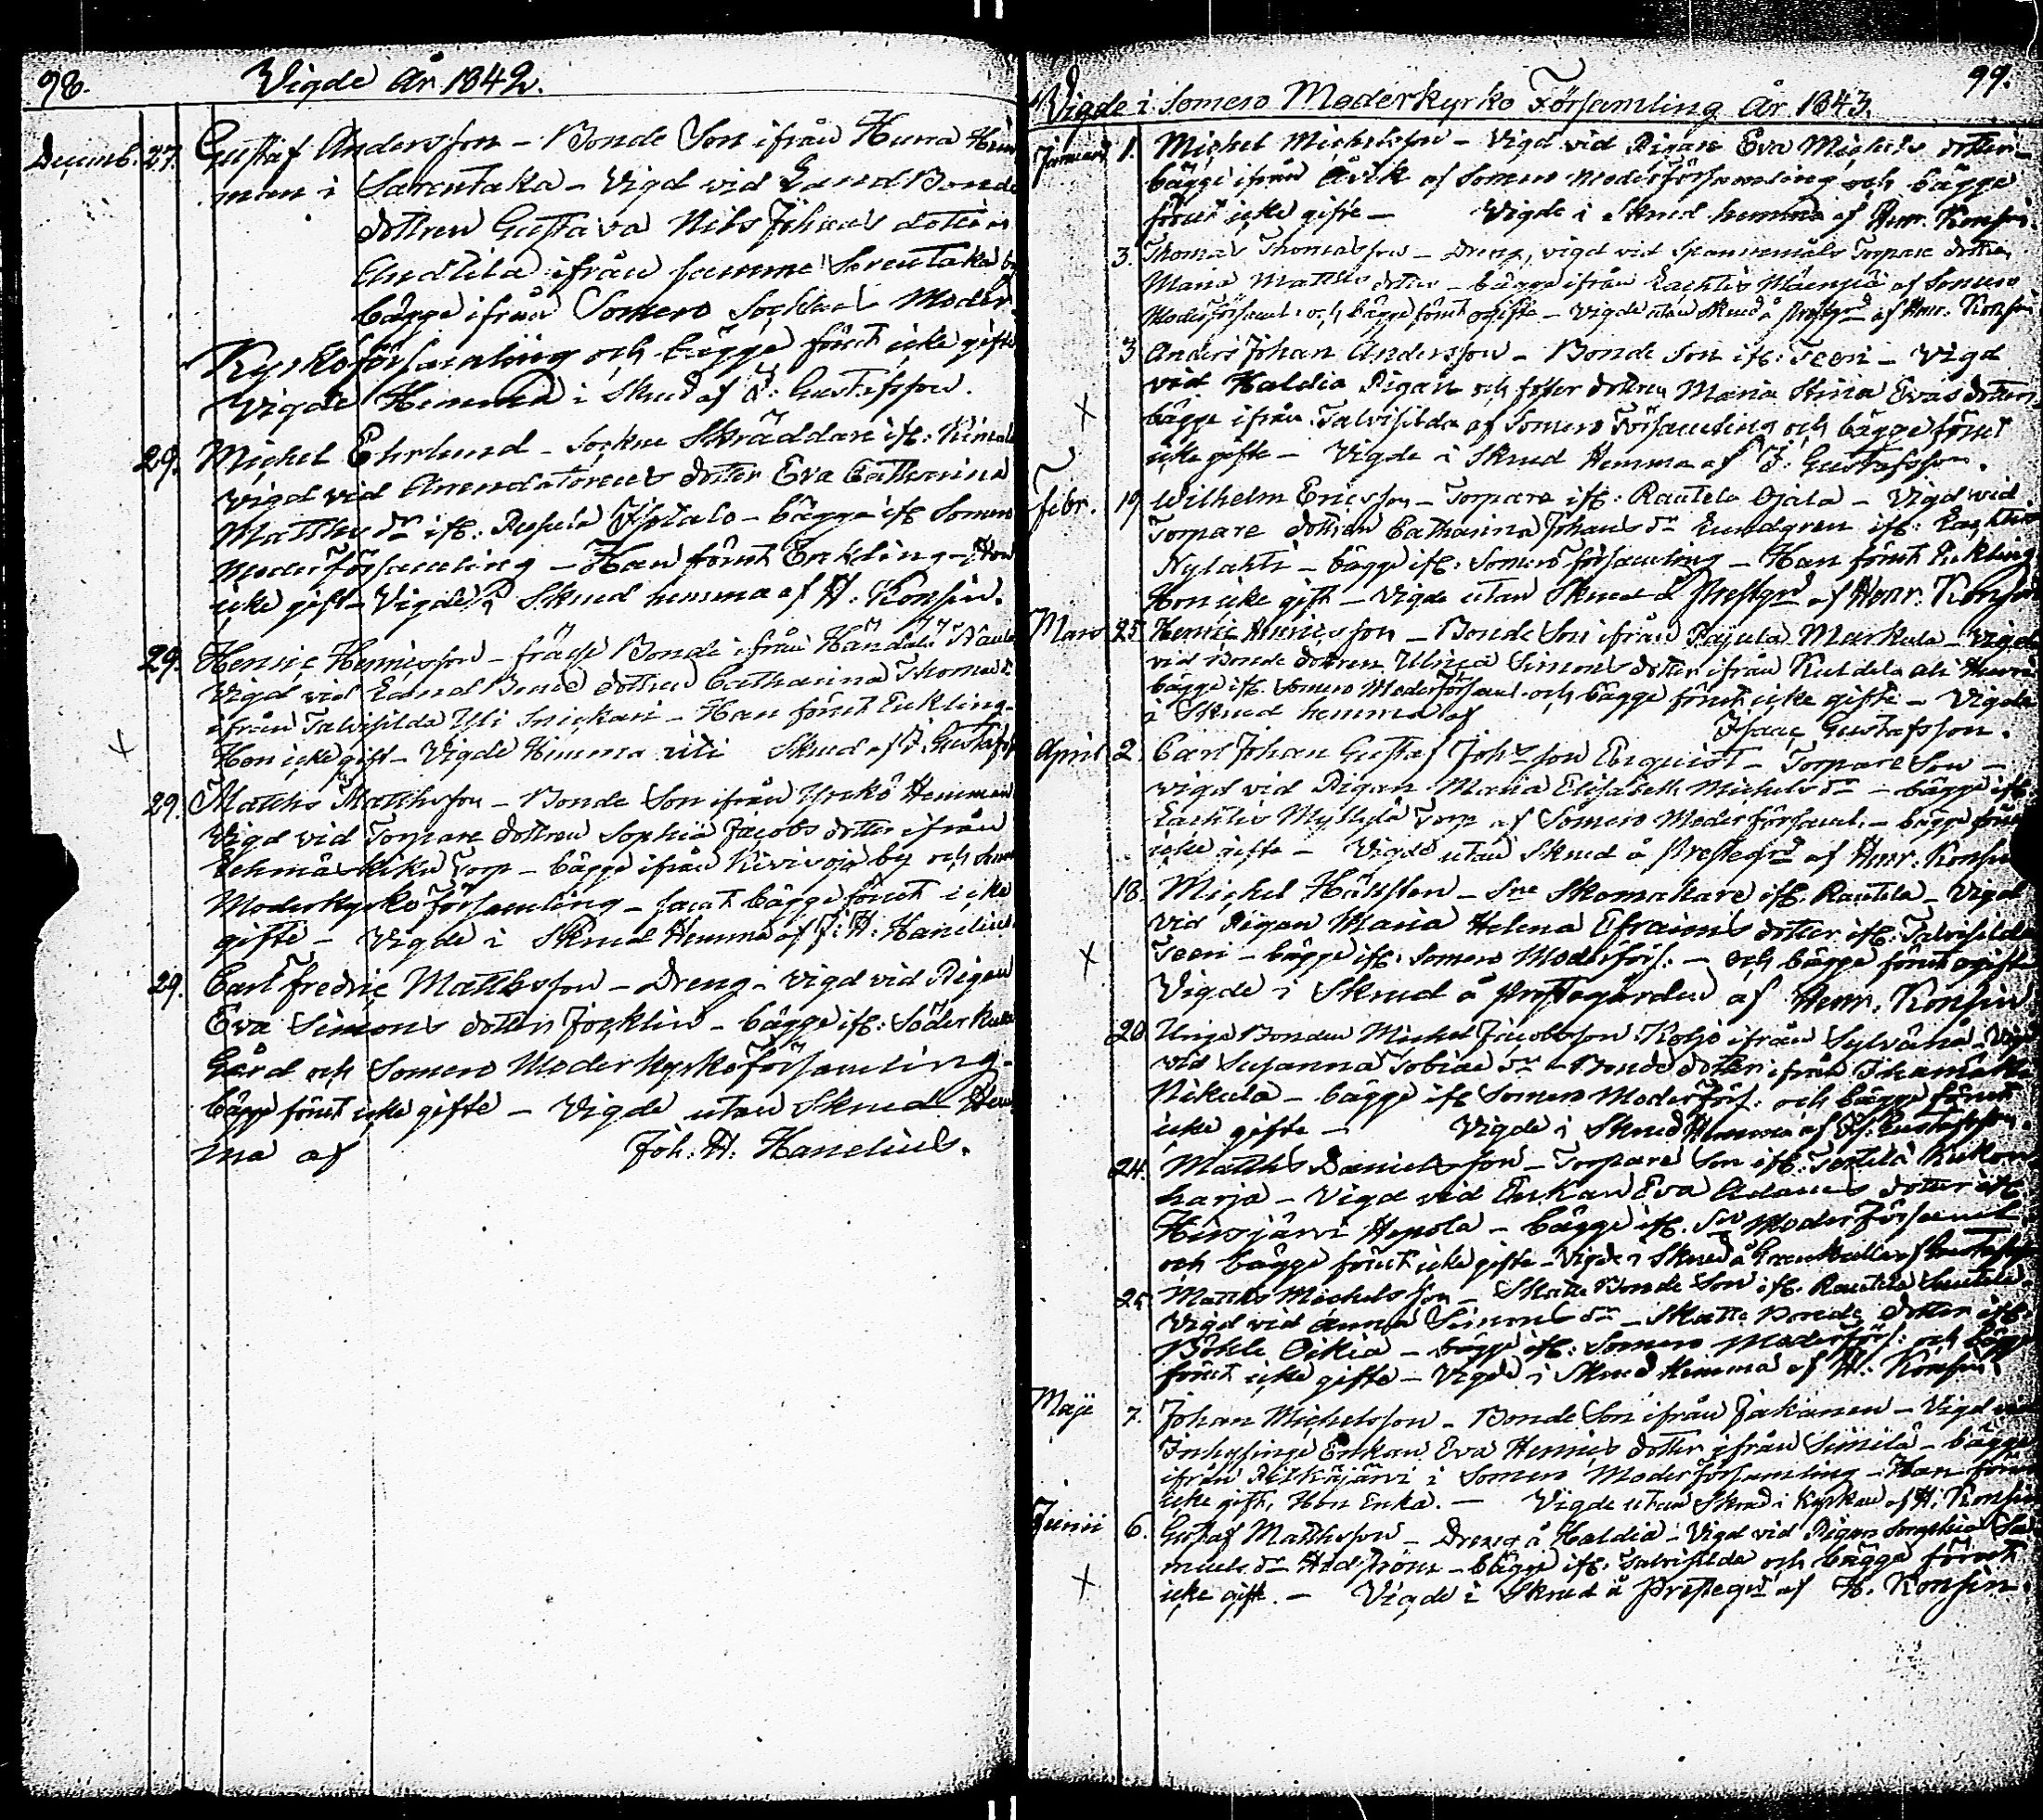 98.
Vigde År 1842.
Decemb. 27. Gustaf Andersson - Bonde Son ifrån Hurra Hem
man i Sarentaka - Vigd vid Land Bonde
dottren Gustava Nils Johans dotter
Andtila ifrån samme Sarentaka by
bägge ifrån Somero Sockens Moder
Kyrkoförsamling och bägge förut icke gifte
Vigde Hemma i Skrud af I: Gustafsson.
29. Michel Ehrlund - Sockne Skräddare ifl:
vigd vid Arrendatorens dotter Eva Catharina
Matths dr ifl: - bägge ifl Somero
Moderförsamling - Han förut Enkling - Hon
icke gift - Vigde i Skrud hemma af H: Konsin.
29. Henric Henricsson - frälse Bonde ifrån Händälä
Vigd vid Land Bonde dottren Catharina Thomæ
ifrån Talvisilda Yli Snickari - Han förut Enkling -
Hon icke gift - Vigde Hemma uti Skrud af I. Gustafss
X
29. Matths Matthsson - Bonde Son ifrån Yrckö Hemman
Vigd vid Torpare dottren Sophia Jacobs dotter ifrån
Torp - bägge ifrån Kivisoja by och
Moderkyrkoförsamling - samt bägge förut icke
gifte - Vigde i Skrud Hemma af J: H: Hanelius
29. Carl Fredric Matthsson - Dreng - vigd vid Pigan
Eva Simons dotter Jocklin - bägge ifl: Söderkulla
Gård och Somero Moderkyrkoförsamling -
bägge förut icke gifte - Vigde utan Skrud Hem
ma af Joh. H. Hanelius.
99.
Vigde i Somero Moderkyrko Församling År 1843.
Januari 1. Michel Michelsson - Vigd vid Pigan Eva Michels dotter -
bägge ifrån Åvik af Somero Moderförsamling och bägge
förut icke gifte - Vigde i Skrud hemma af Henr. Konsin.
3. Thomas Thomasson - Dreng, vigd vid Spannemåls Torpare dotter
Maria Matths dotter - bägge ifrån Lachtis Mäenpää af Somero
Moderförsaml: och bägge förut ogifte - Vigde utan Skrud å Prestgrd af Henr. Konsin
3 Anders Johan Andersson - Bonde Son ifl: Teeri - Vigd
vid Haldia Pigan och foster dottren Maria Stina Evas dotter
X
bägge ifrån Talvisilda af Somero Församling och bägge förut
icke gifte - Vigde i Skrud Hemma af I: Gustafsson.
Febr. 19 Wilhelm Ericsson - Torpare ifl: Rautela Ojala - Vigd vid
Torpare dottren Catharina Johans dr Lundgren ifl: Lachtis
Nylahti - bägge ifl: Somero församling - Han förut Enkling
Hon icke gift - Vigde utan Skrud å Prestgrd af Henr. Konsin
Mars 25. Henric Henricsson - Bonde Son ifrån Pajula Markula - Vigd
vid Bonde dottren Ulrica Simons dotter ifrån Kuldela Ali Hurri
bägge ifl. Somero Moderförsaml. och bägge förut icke gifte - Vigde
i Skrud hemma af Isaac Gustafsson.
April 2. Carl Johan Gustaf Johsson Enquist - Torpare Son -
vigd vid Pigan Maria Elisabeth Michels dr - bägge ifl.
Lachtis Myllylä Torp af Somero Moderförsaml. - bägge förut
icke gifte - Vigde utan Skrud å Prestegrd af Henr. Konsin
18. Michel Hällsten - Sne Skomakare ifl. Rautela - Vigd
vid Pigan Maria Helena Efraims dotter ifl: Talvisilda
X
Teeri - bägge ifl: Somero Moderförs: - och bägge förut ogifte
Vigde i Skrud å Prestegården af Henr. Konsin
20 Unga Bonden Michel Jacobsson Koljo ifrån Sylvänä - Vigd
vid Susanna Tobiæ dr - Bonde dotter ifrån
Nikula - bägge ifl Somero Moderförs. och bägge förut
icke gifte - Vigde i Skrud Hemma af Is: Gustafsson.
24. Matths Danielsson - Torpare Son ifl: Terttilä Kukon
harja - Vigd vid Enkan Eva Adams dotter ifl
Hirsjärvi Hepola - bägge ifl. Sro Moderförsaml
och bägge förut icke gifte - Vigde i Skrud å af Gustafsson
25. Matths Michelsson - Skatte Bonde Son ifl. Rautela
Vigd vid Anna Simons dr - Skatte Bonde dotter ifl:
Oikia - bägge ifl: Somero Moderförs: och bägge
förut icke gifte - Vigde i Skrud Hemma af H. Konsin.
Maji 7. Johan Michelsson - Bonde Son ifrån Jakanen - Vigd vid
Inhysinge Enkan Eva Henrics dotter ifrån Simila - bägge
ifrån Pitkäjärvi i Somero Moderförsamling - Han förut
icke gift, Hon Enka. - Vigde utan Skrud i Kyrkan af H. Konsin
Junii 6. Gustaf Matthsson - Dreng å Haldia - Vigd vid Pigan Sophia Sa
muels dr Hedström - bägge ifl. Talvisilda och bägge förut
X
icke gift. - Vigde i Skrud å Prestegrd af H. Konsin.